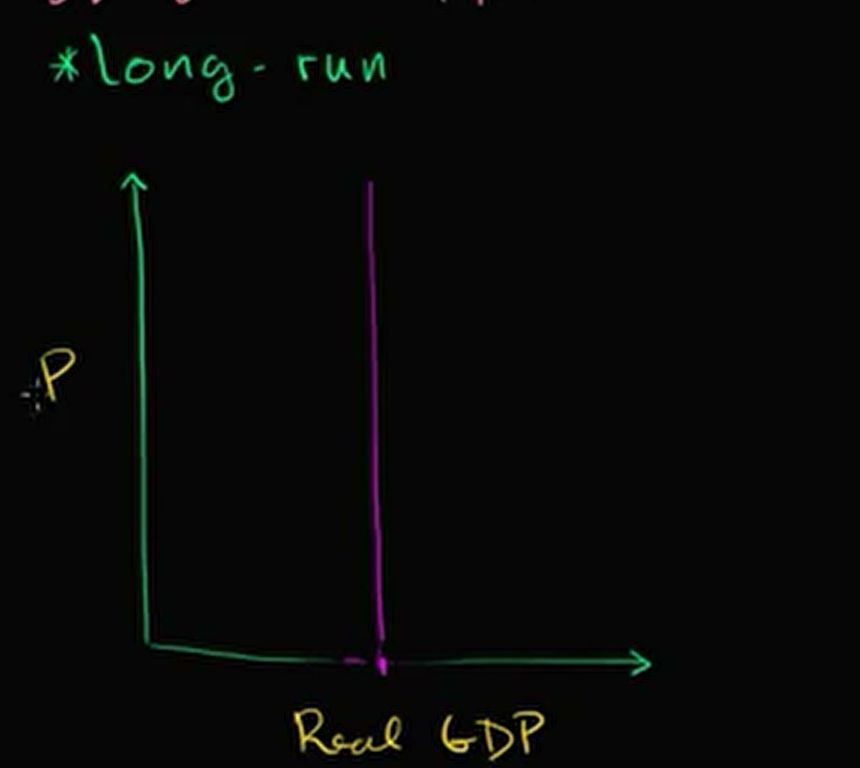 *long-run
P
Real GDP